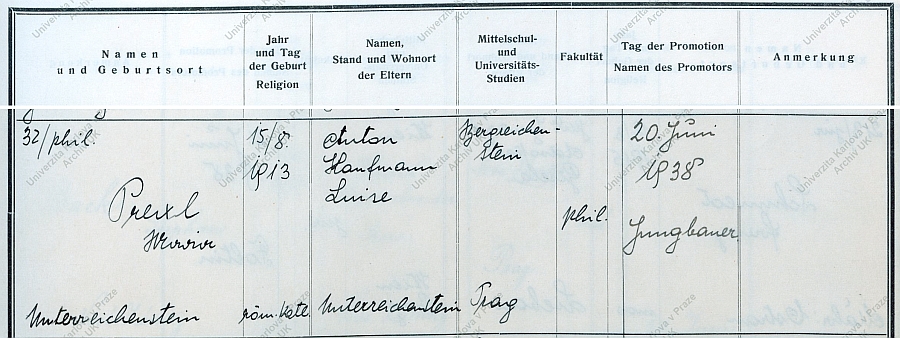 Namen
und Geburtsort
Jahr
und Tag
der Geburt
Religion
Namen,
Stand und Wohnort
der Eltern
Mittelschul-
und
Universitäts-
Studien
Fakultät
Tag der Promotion
Namen des Promotors
Anmerkung
32/phil.
Prexl
Unterreichenstein
15/8.
1913
röm. kath.
Anton
Kaufmann
Luise
Unterreichenstein
Bergreichen-
stein
Prag
phil.
20. Juni
1938
Jungbauer
Univerzita Karlova v Praze
Archiv UK